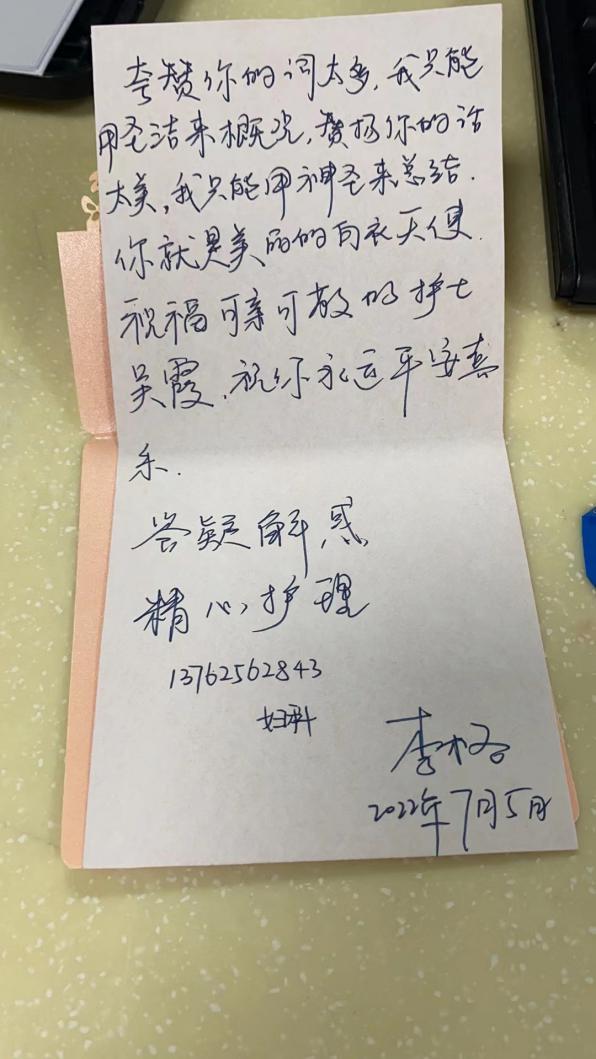 夸赞你的词太多，我只能
用圣洁来概况，赞扬你的话
太美，我只能用神圣来总结.
你就是美丽的白衣天使.
祝福可亲可敬的护士
吴霞，祝你永远平安喜
乐.
答疑解惑
精心护理
13762562843
妇科
李格
2022年7月5日